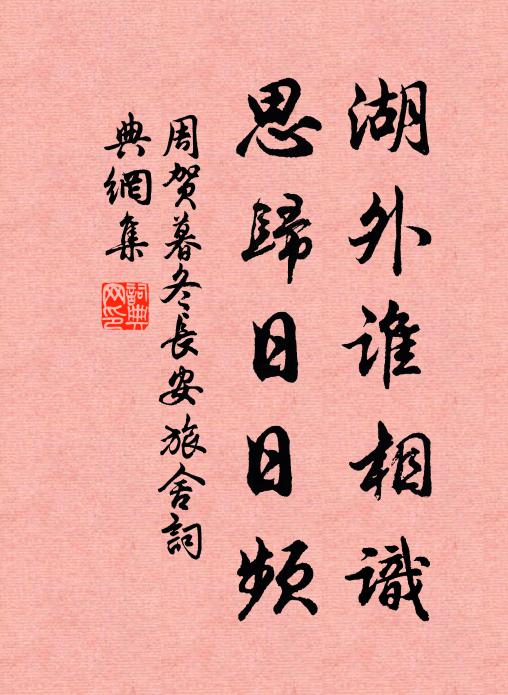 湖外谁相識
思歸日日频
周贺暮冬長安旅舍詞
典網集
詞典网印